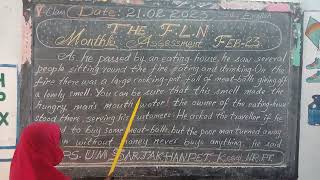 Class Date: 21.02.202
THE F.L.N
Monthly Assessment FEB-23.
As he passed by an eating-house, he saw several
people sitting round the fire eating and drinking. On the
fire there was a large cooking-pot full of meat-balls, which gave
a lovely smell. You can be sure that this smell made the
hungry man's mouth water! the owner of the eating-house
stood there, serving his customers. He asked the traveller if he
to buy some meat-balls, but the poor man turned away
without money never buys anything, he said.
P.S. UMI SARJAKHANPET